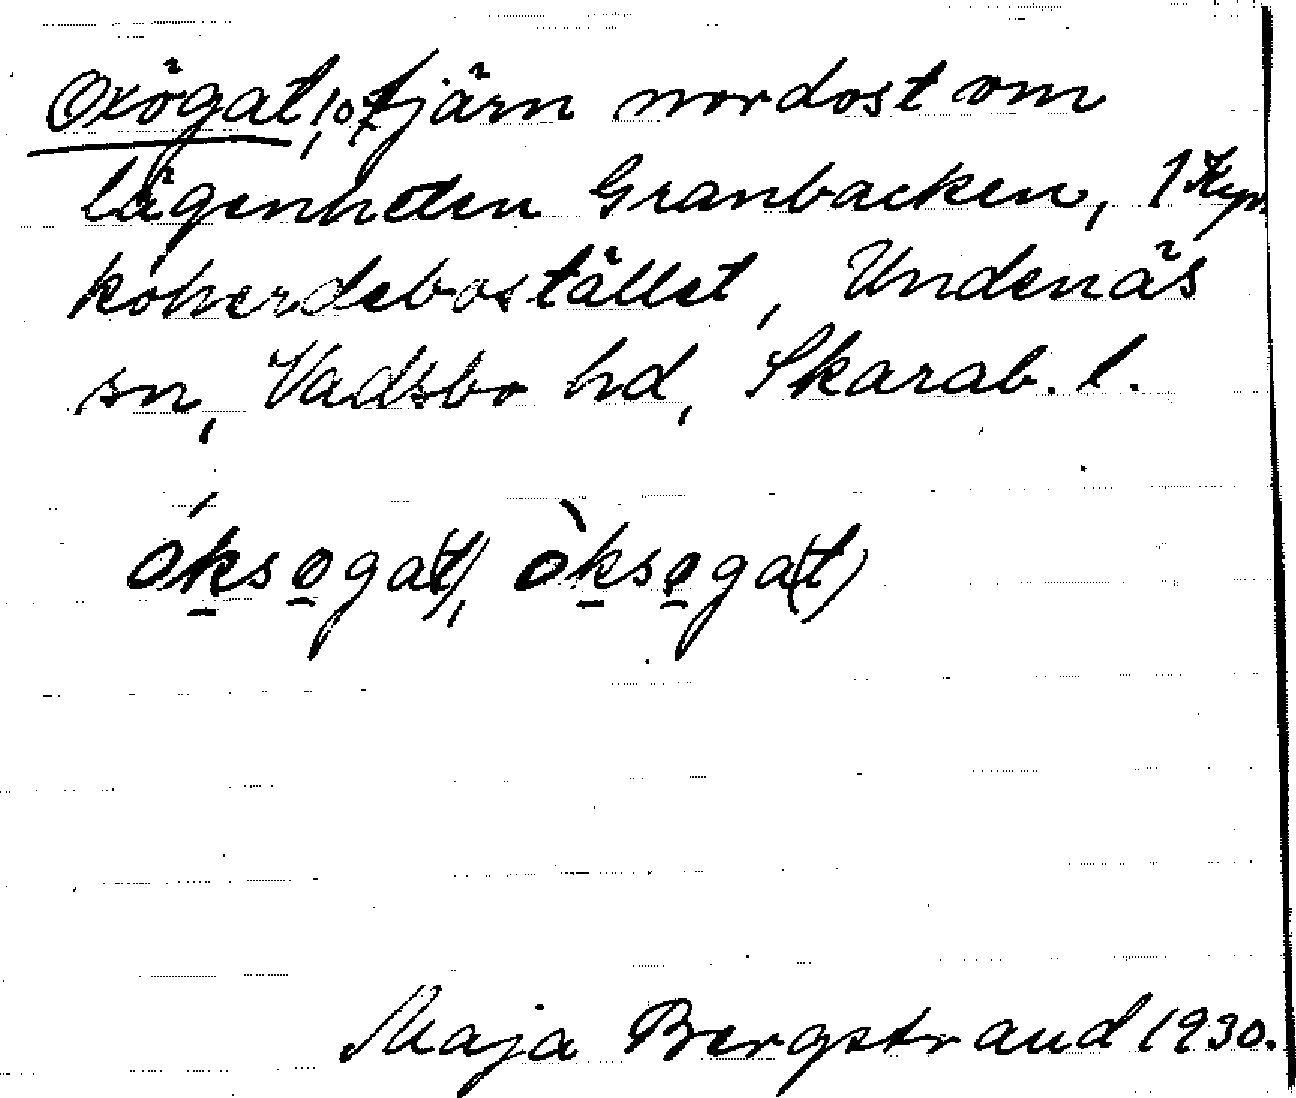 Oxögat, tjärn nordost om
lägenheten Granbacken, 1 Kyr
koherdebostället, Undenäs
sn, Vadsbo hd, Skarab. l.
óksogat(t), òksoga(t)
Maja Bergstrand 1930.